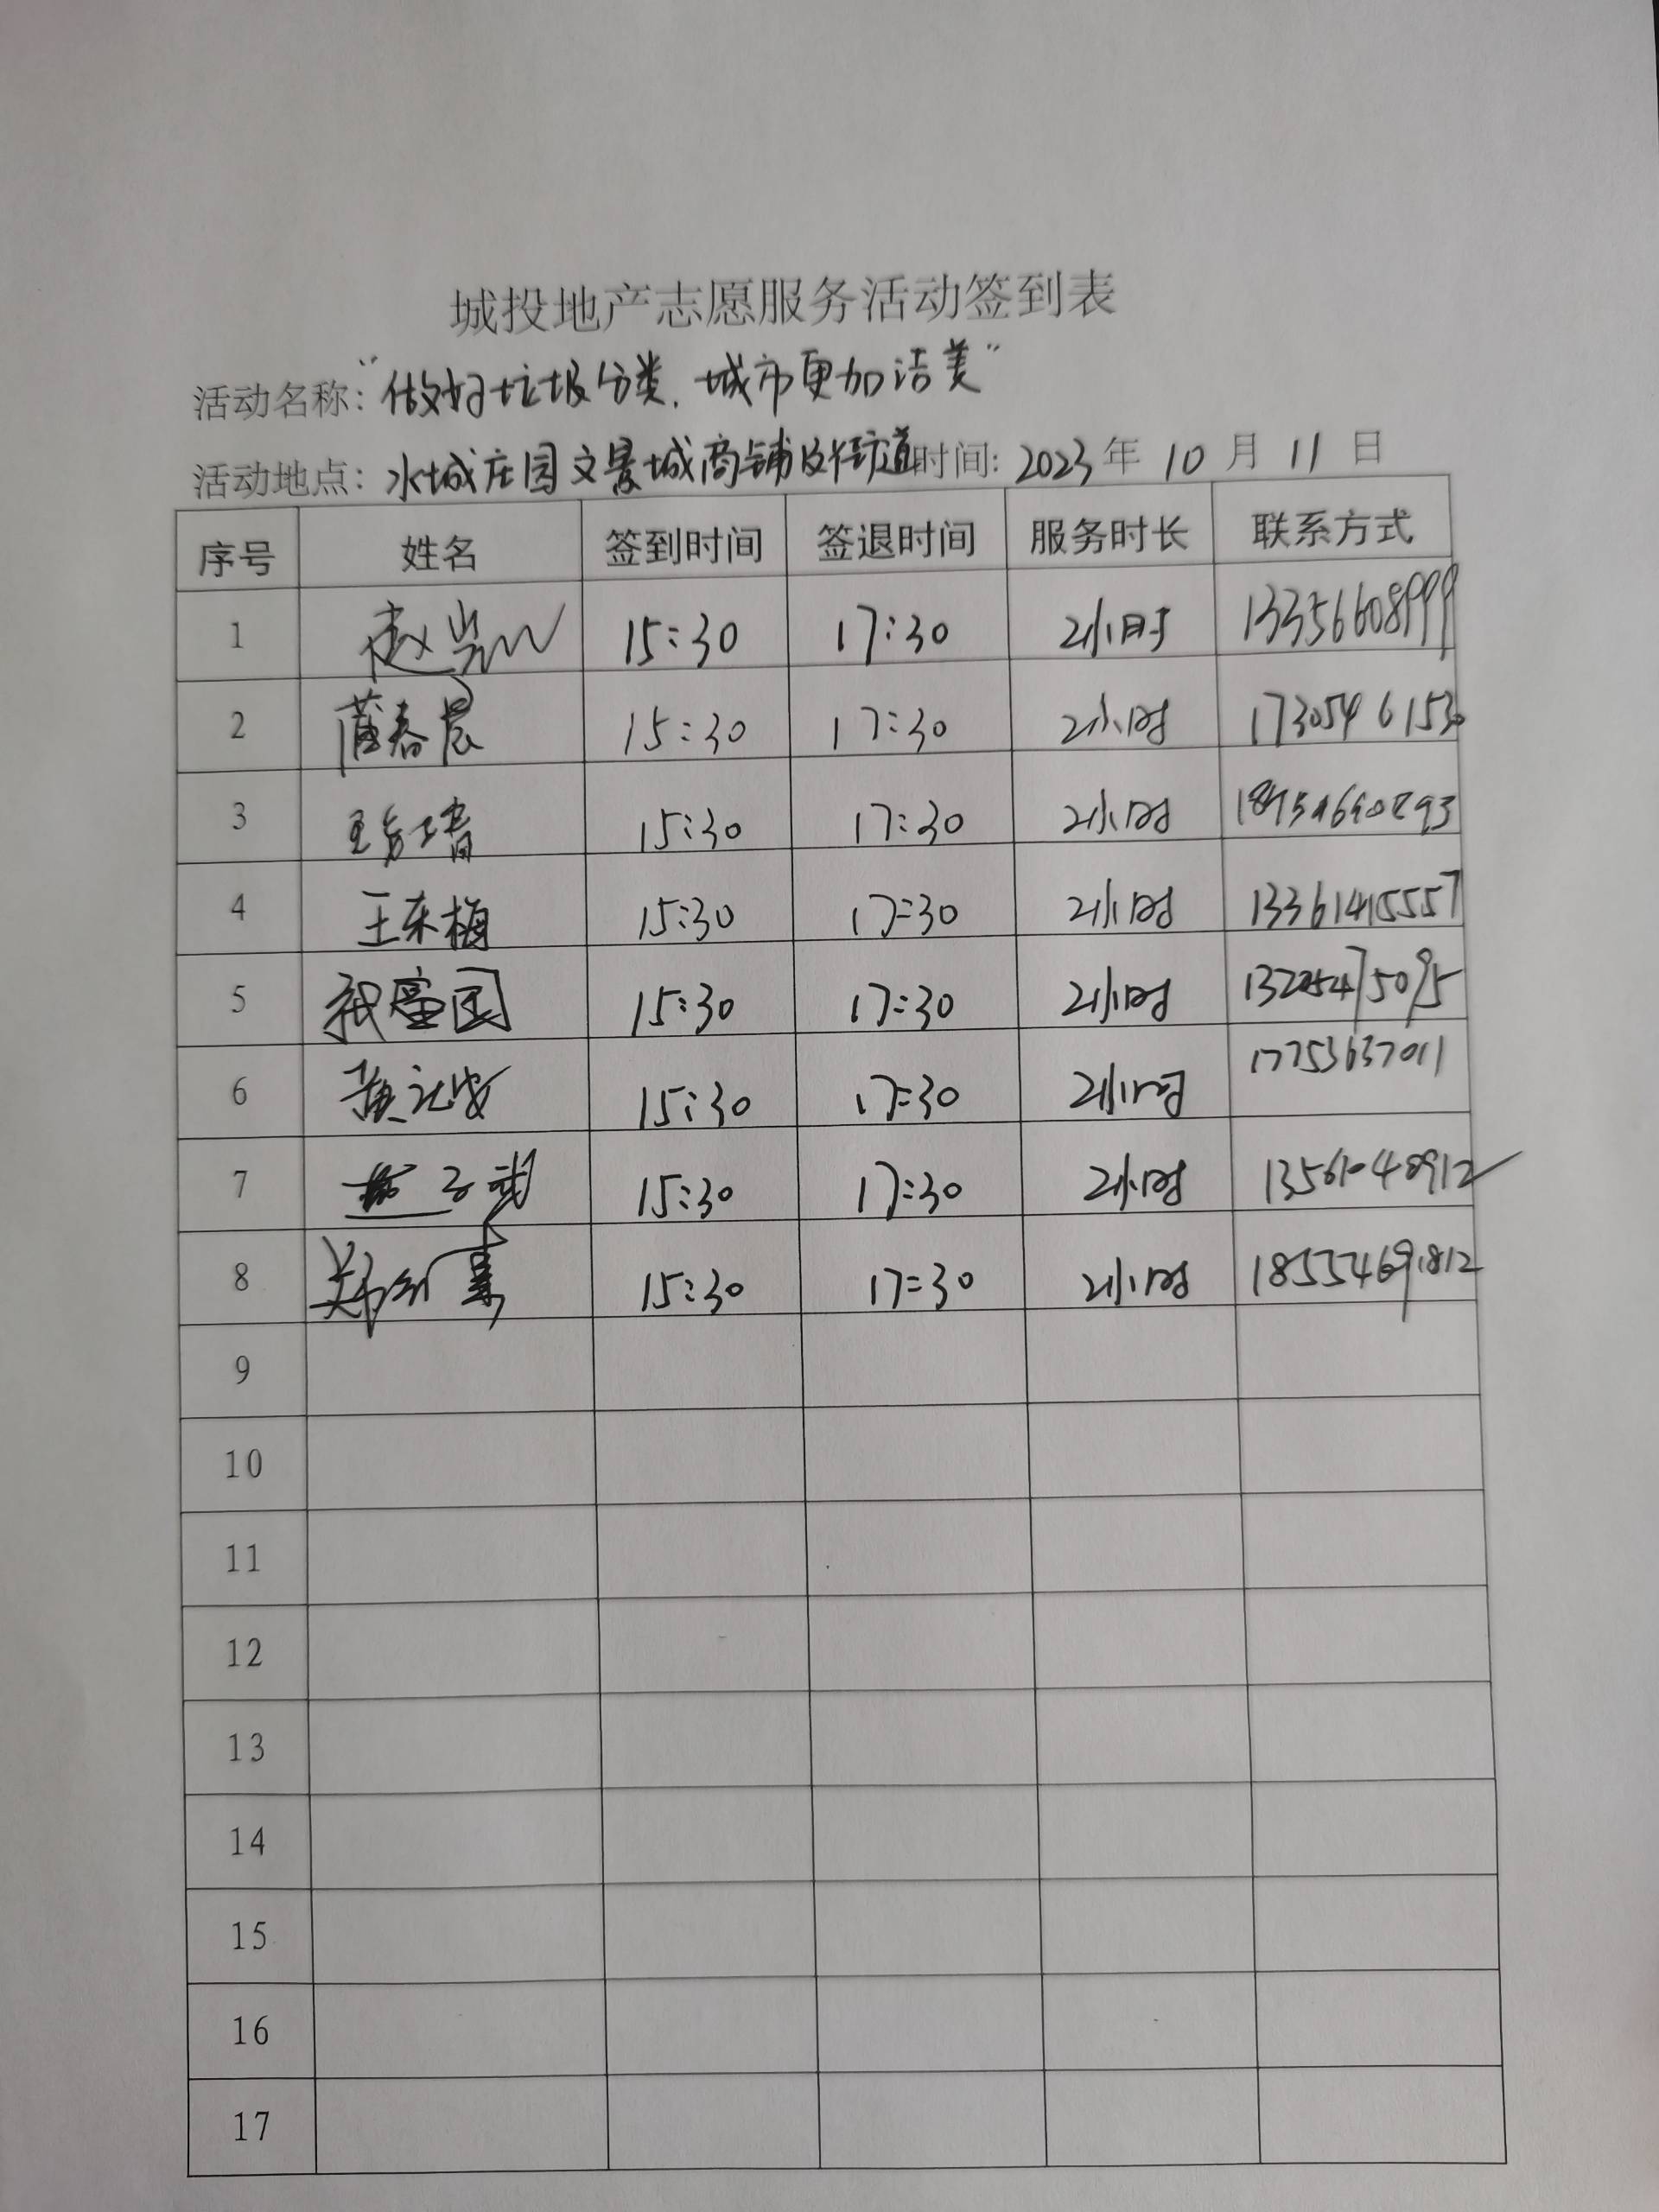 城投地产志愿服务活动签到表
活动名称：“做好垃圾分类，城市更加洁美”
活动地点：水城庄园文景城商铺及街道 时间：2023年10月11日
序号 姓名 签到时间 签退时间 服务时长 联系方式
1 赵 15:30 17:30 2小时 13356608999
2 董春晨 15:30 17:30 2小时 17305461530
3 15:30 17:30 2小时
4 王东梅 15:30 17:30 2小时 13361415557
5 国 15:30 17:30 2小时 13205475095
6 15:30 17:30 2小时 17753637011
7 15:30 17:30 2小时
8 郑 15:30 17:30 2小时 18554691812
9
10
11
12
13
14
15
16
17